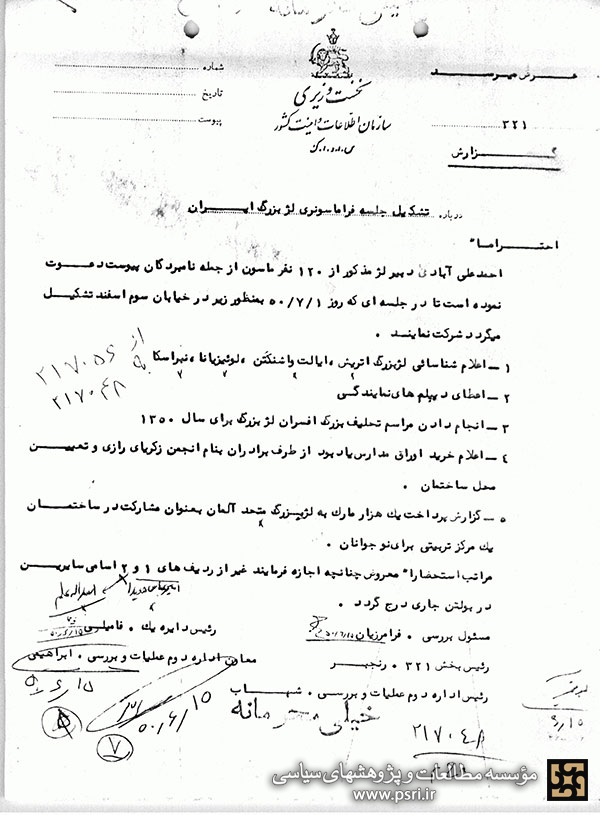 بعرض میرسد
شماره
نخست وزیری
تاریخ
سازمان اطلاعات و امنیت کشور
پیوست
۳۲۱
س.ا.و.ا.ک
گزارش
درباره تشکیل جلسه فراماسونری لژ بزرگ ایران
احتراما"
احمدعلی آبادی دبیر لژ مذکور از ۱۲۰ نفر ماسون از جمله نامبردگان پیوست دعوت
نموده است تا در جلسه ای که روز ۵۰/۷/۱ بمنظور زیر در خیابان سوم اسفند تشکیل
میگردد شرکت نمایند .
۱ - اعلام شناسائی لژ بزرگ اتریش ، ایالت واشنگتن ، لوئیزیانا ، نبراسکا
از ۲۱۷۰۵۶
به ۲۱۷۰۴۸
۲ - اعطای دیپلم های نمایندگی
۳ - انجام دادن مراسم تحلیف بزرگ افسران لژ بزرگ برای سال ۱۳۵۰
۴ - اعلام خرید اوراق مدارس یادبود از طرف برادران بنام انجمن زکریای رازی و تعیین
محل ساختمان .
۵ - گزارش پرداخت یک هزار مارک به لژ بزرگ متحد آلمان بعنوان مشارکت در ساختمان
یک مرکز تربیتی برای نوجوانان .
مراتب استحضارا" معروض چنانچه اجازه فرمایند غیر از ردیف های ۱ و ۲ اسامی سایرین
امیرعباس هویدا اسدالله علم
در بولتن جاری درج گردد .
مسئول بررسی . فرامرزیان
رئیس دایره یک . فامیلی
رئیس بخش ۳۲۱ . رنجبر
معاون اداره دوم عملیات و بررسی . ابراهیمی
رئیس اداره دوم عملیات و بررسی . شهاب
۵۰/۶/۱۵
۵۰/۶/۱۵
خیلی محرمانه
۲۱۷۰۴۸
۷
۶/۱۵
مؤسسه مطالعات و پژوهشهای سیاسی
www.psri.ir